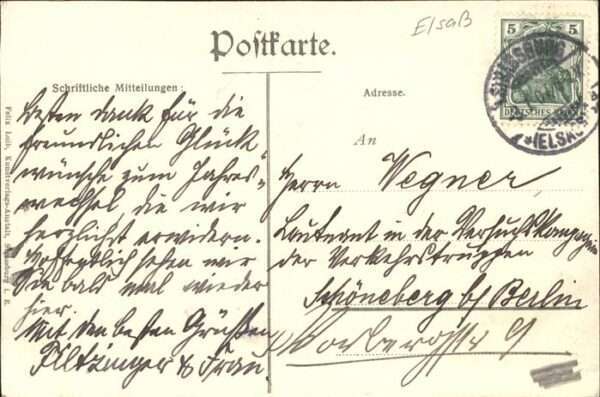 Elsaß
Postkarte.
Schriftliche Mitteilungen:
Besten Dank für die
freundlichen Glück
wünsche zum Jahres-
wechsel die wir
herzlichst erwidern.
Hoffentlich sehen wir
Sie bald mal wieder
hier.
Mit den besten Grüßen
Filtzinger & Frau
Adresse.
An
Herrn Wegner,
Leutnant in der Versuchskompagnie
der Verkehrstruppen
Schöneberg b/ Berlin
9
5 5
DEUTSCHES REICH
STRASSBURG
(ELS.)
Felix Luib, Kunstverlags-Anstalt, Strassburg i. E.